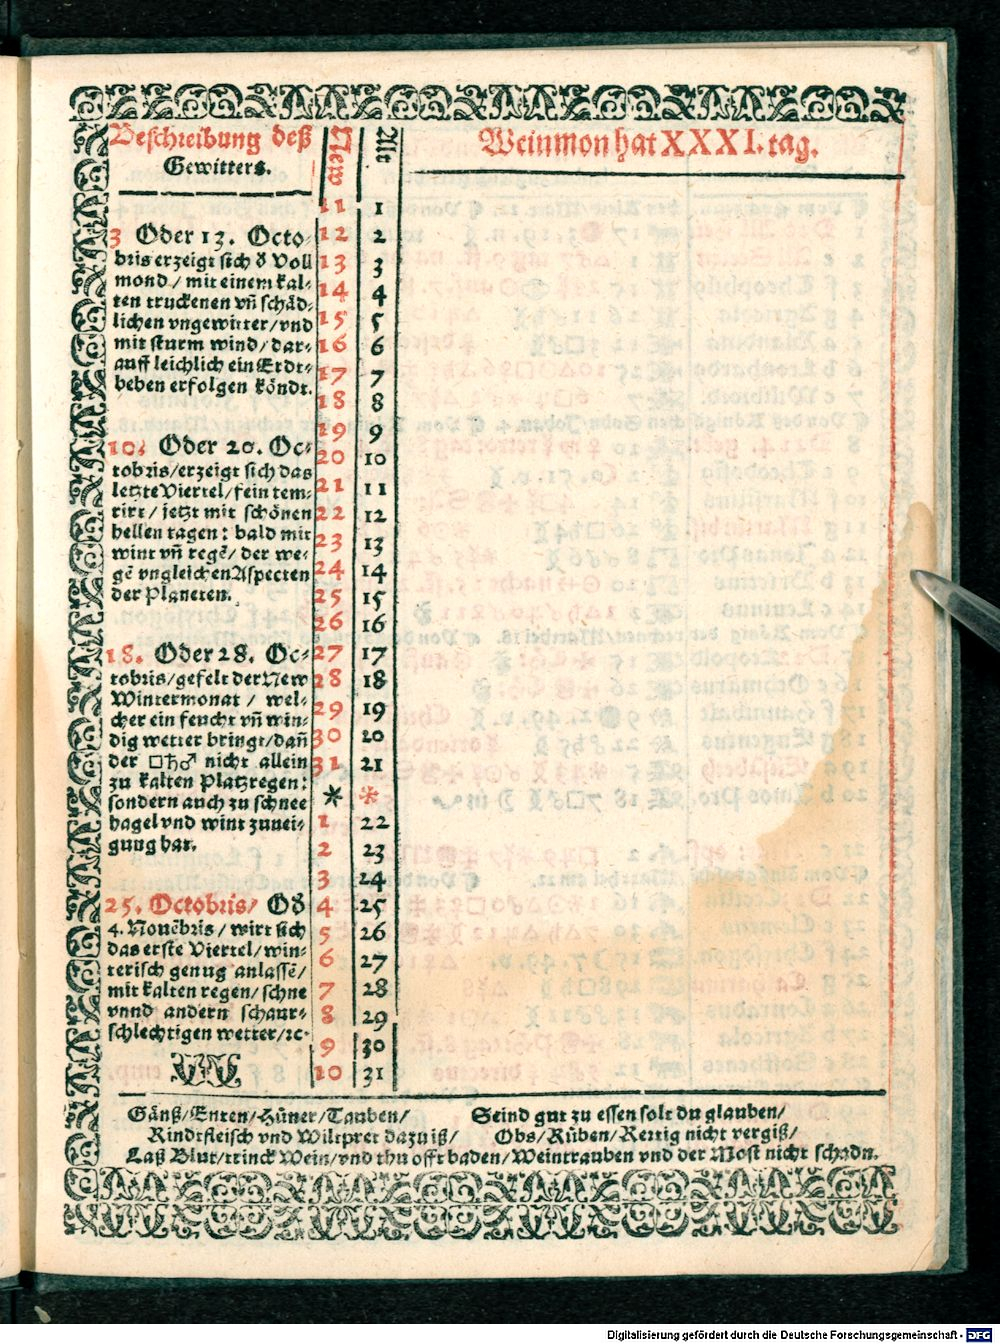 Beschreibung deß
Gewitters.
New
Alt
Weinmon hat XXXI. tag.
3 Oder 13. Octo-
bris erzeigt sich ď Voll
mond/mit einem kal-
ten truckenen vñ schäd-
lichen vngewitter/vnd
mit sturm wind/dar-
auff leichlich ein Erdt-
beben erfolgen köndt.
10. Oder 20. Oc-
tobris/erzeigt sich das
letzte Viertel/fein tem-
rirt/jetzt mit schönen
hellen tagen: bald mit
wint vñ regē/der we-
gē vngleichen Aspecten
der Planeten.
18. Oder 28. Oc-
tobris/gefelt der New
Wintermonat/wel-
cher ein feucht vñ win-
dig wetter bringt/dañ
der □♄♂ nicht allein
zu kalten Platzregen:
sondern auch zu schnee
hagel vnd wint zunei-
gung hat.
25. Octobris/Oď
4. Nouēbris/wirt sich
das erste Viertel/win-
terisch genug anlassē/
mit kalten regen/schne
vnnd andern schaur-
schlechtigen wetter/ꝛc.
11 1
12 2
13 3
14 4
15 5
16 6
17 7
18 8
19 9
20 10
21 11
22 12
23 13
24 14
25 15
26 16
27 17
28 18
29 19
30 20
31 21
* *
1 22
2 23
3 24
4 25
5 26
6 27
7 28
8 29
9 30
10 31
Gänß/Enten/Hüner/Tauben/ Seind gut zu essen solt du glauben/
Rindtfleisch vnd Wiltpret dazu iß/ Obs/Rüben/Rettig nicht vergiß/
Laß Blut/trinck Wein/vnd thu offt baden/Weintrauben vnd der Most nicht schadn.
Digitalisierung gefördert durch die Deutsche Forschungsgemeinschaft - DFG